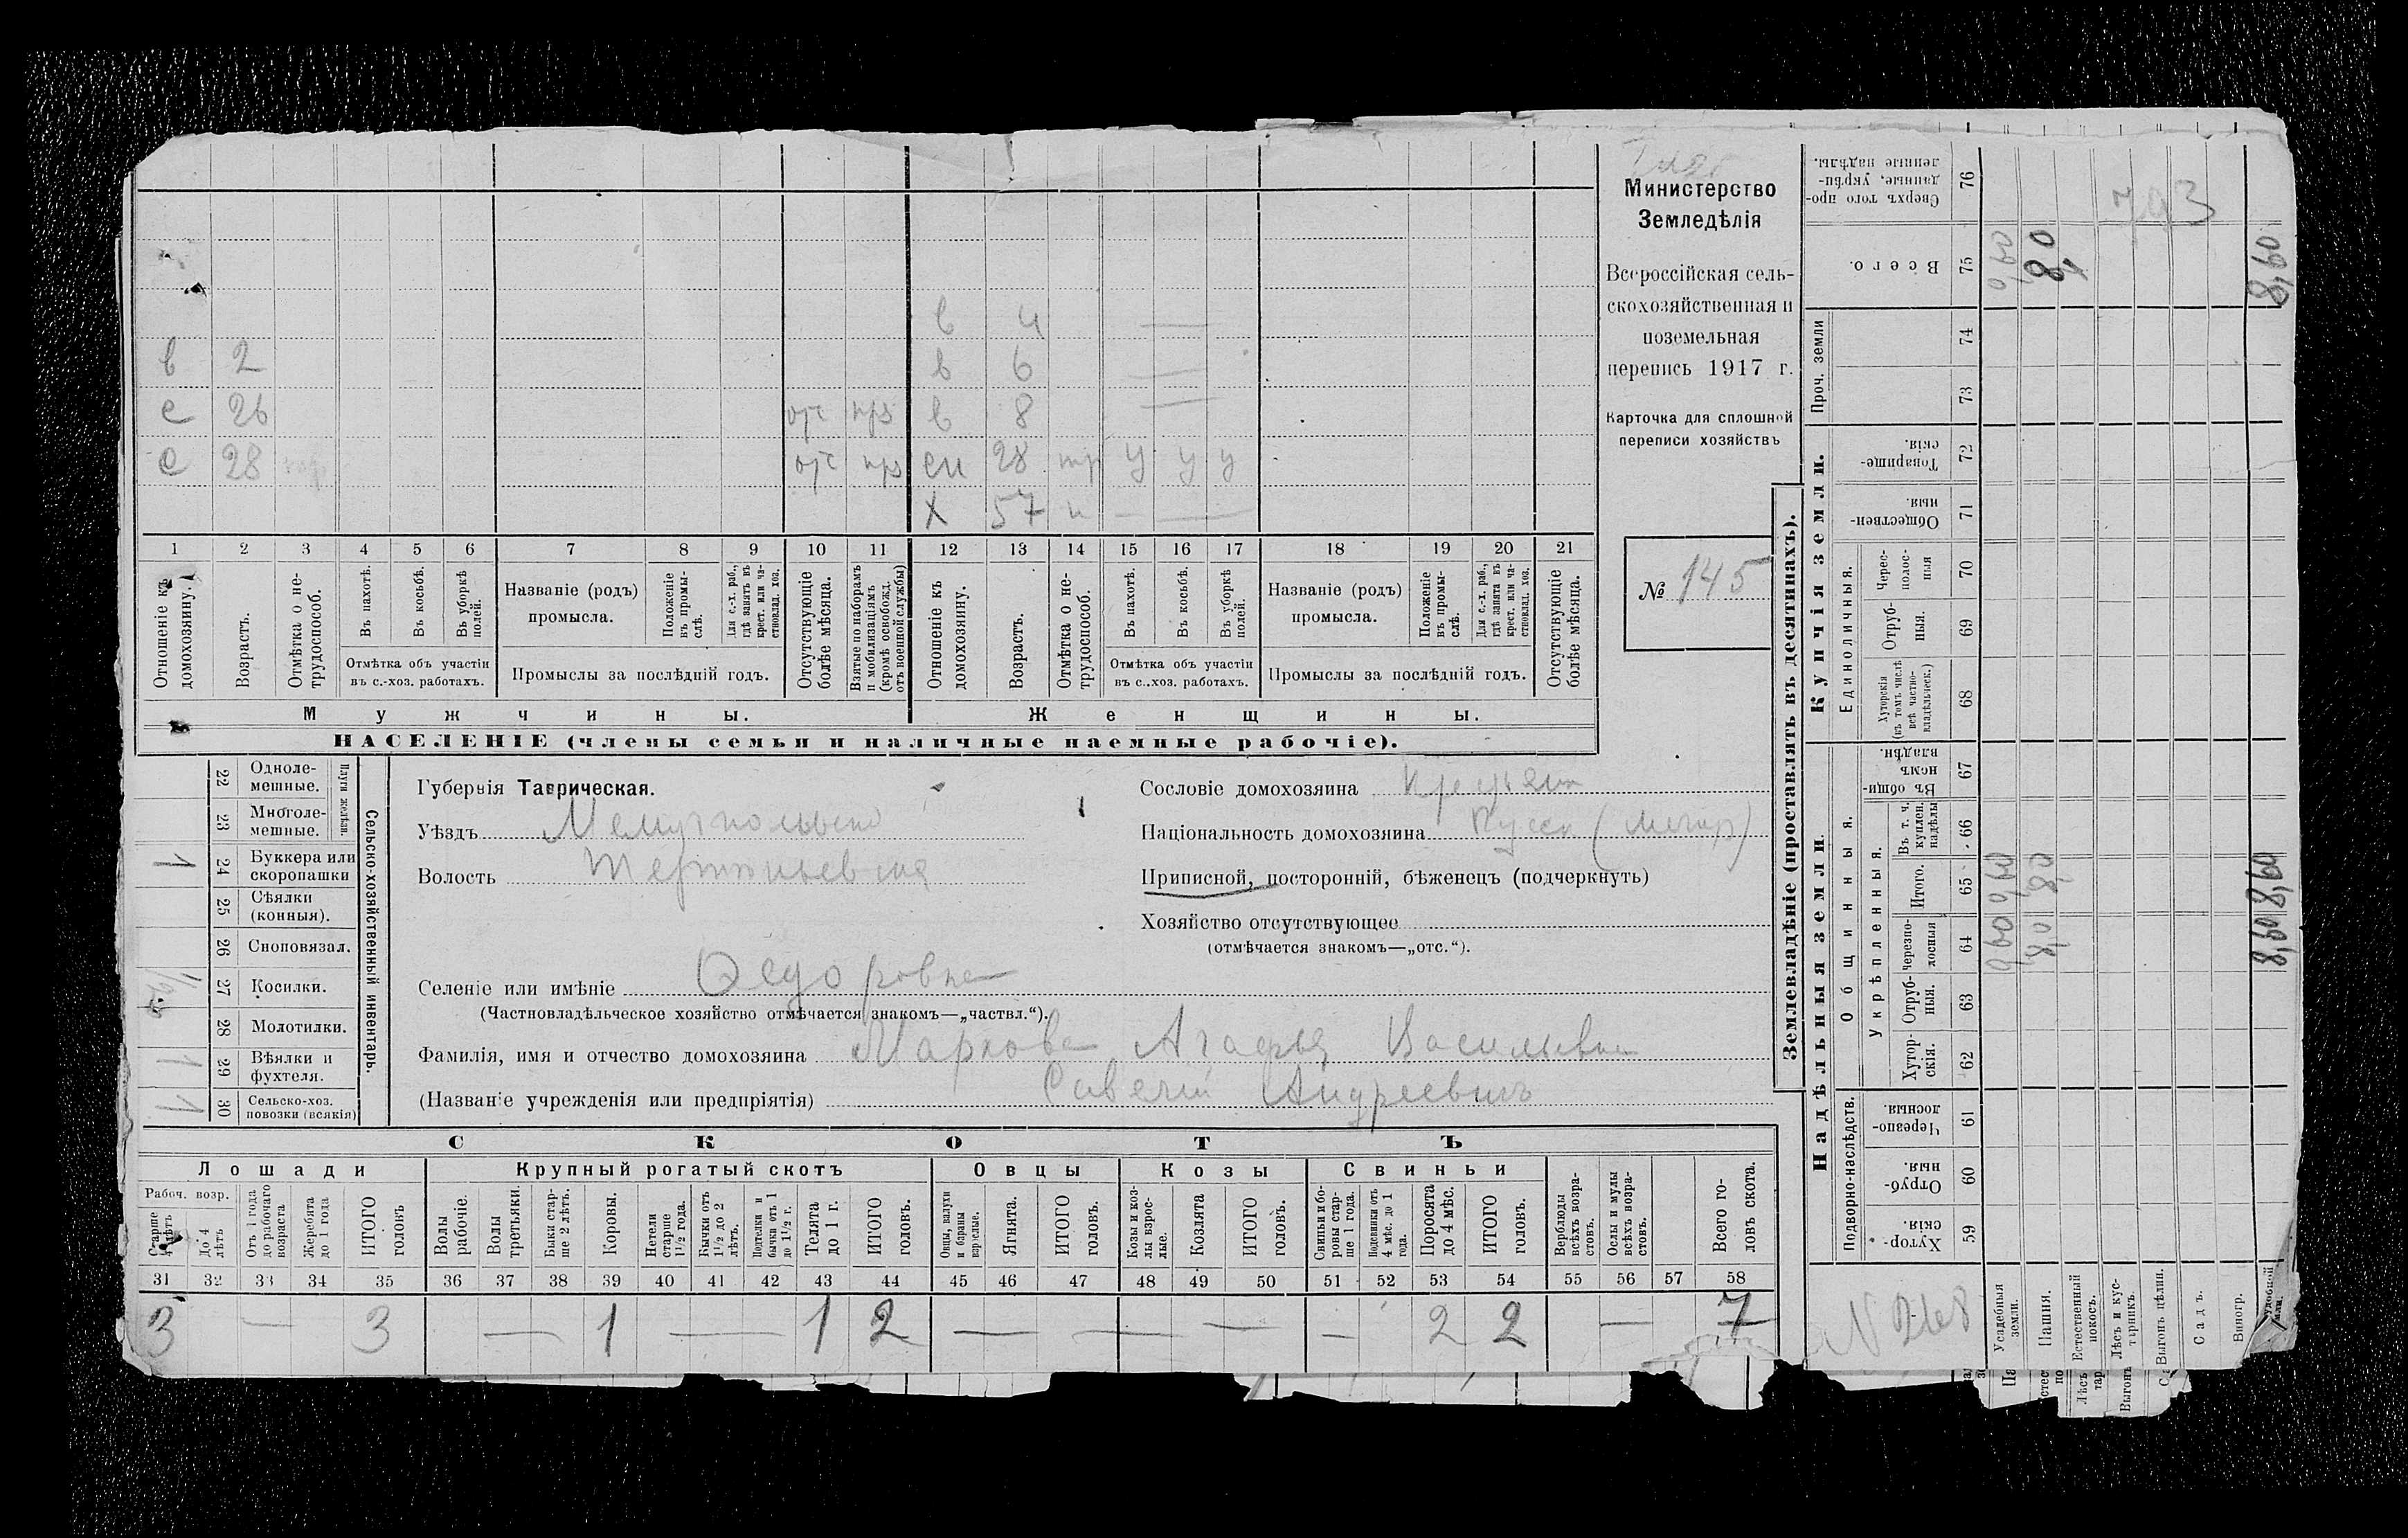 в 4
в 2 в 6
с 26 отс прз в 8
с 28 отс прз сн 28 тр у у у
х 57 н
1 2 3 4 5 6 7 8 9 10 11 12 13 14 15 16 17 18 19 20 21
Отношеніе къ домохозяину.
Возрастъ.
Отмѣтка о нетрудоспособ.
Въ пахотѣ.
Въ косьбѣ.
Въ уборкѣ полей.
Отмѣтка объ участіи
въ с.-хоз. работахъ.
Названіе (родъ)
промысла.
Положеніе въ промыслѣ.
Для с.-х. раб., гдѣ занятъ въ крест. или частновлад. хоз.
Промыслы за послѣдній годъ.
Отсутствующіе болѣе мѣсяца.
Взятые по наборамъ и мобилизаціямъ (кромѣ освобожд. отъ военной службы)
Отношеніе къ домохозяину.
Возрастъ.
Отмѣтка о нетрудоспособ.
Въ пахотѣ.
Въ косьбѣ.
Въ уборкѣ полей.
Отмѣтка объ участіи
въ с.-хоз. работахъ.
Названіе (родъ)
промысла.
Положеніе въ промыслѣ.
Для с.-х. раб., гдѣ занята въ крест. или частновлад. хоз.
Промыслы за послѣдній годъ.
Отсутствующіе болѣе мѣсяца.
Мужчины. Женщины.
НАСЕЛЕНІЕ (члены семьи и наличные наемные рабочіе).
Министерство
Земледѣлія
Всероссійская сель-
скохозяйственная и
поземельная
перепись 1917 г.
Карточка для сплошной
переписи хозяйствъ
№ 145
Сельско-хозяйственный инвентарь.
Плуги желѣзн.
22 Одноле-
мешные.
23 Многоле-
мешные.
1 24 Буккера или
скоропашки
25 Сѣялки
(конныя).
26 Сноповязал.
27 Косилки.
28 Молотилки.
1 29 Вѣялки и
фухтеля.
1 30 Сельско-хоз.
повозки (всякія)
Губернія Таврическая.
Уѣздъ Мелитопольскій
Волость
Селеніе или имѣніе Федоровка
(Частновладѣльческое хозяйство отмѣчается знакомъ—„частвл.“).
Фамилія, имя и отчество домохозяина Маркова Агафья Васильевна
Савелій Андреевичъ
(Названіе учрежденія или предпріятія)
Сословіе домохозяина Крестьян
Національность домохозяина Русск
Приписной, посторонній, бѣженецъ (подчеркнуть)
Хозяйство отсутствующее
(отмѣчается знакомъ—„отс.“).
СКОТЪ
Лошади Крупный рогатый скотъ Овцы Козы Свиньи
Рабоч. возр.
Старше 4 лѣтъ
До 4 лѣтъ
Отъ 1 года до рабочаго возраста
Жеребята до 1 года
ИТОГО головъ
Волы рабочіе.
Волы третьяки.
Быки старше 2 лѣтъ.
Коровы.
Нетели старше 1½ года.
Бычки отъ 1½ до 2 лѣтъ.
Подтелки и бычки отъ 1 до 1½ г.
Телята до 1 г.
ИТОГО головъ.
Овцы, валухи и бараны взрослые.
Ягнята.
ИТОГО головъ.
Козы и козлы взрослые.
Козлята
ИТОГО головъ.
Свиньи и боровы старше 1 года.
Подсвинки отъ 4 мѣс. до 1 года.
Поросята до 4 мѣс.
ИТОГО головъ.
Верблюды всѣхъ возрастовъ.
Ослы и мулы всѣхъ возрастовъ.
Всего головъ скота.
31 32 33 34 35 36 37 38 39 40 41 42 43 44 45 46 47 48 49 50 51 52 53 54 55 56 57 58
3 — 3 — 1 — 1 2 — — — — 2 2 — 7
Землевладѣніе (проставлять въ десятинахъ).
Надѣльныя земли. Купчія земли.
Подворно-наслѣдств.
Общинныя.
Укрѣпленныя.
Единоличныя.
Проч. земли
Хуторскія. 59
Отрубныя. 60
Черезполосныя. 61
Хуторскія. 62
Отрубныя. 63
Черезполосныя 64
Итого. 65
Въ т. ч. куплен. надѣлы 66
Въ общинномъ владѣн. 67
Хуторскія (въ томъ числѣ всѣ частновладѣльческ.) 68
Отрубныя. 69
Чересполосныя 70
Общественныя. 71
Товарищескія. 72
73
74
Всего. 75
Сверхъ того проданные, укрѣпленные надѣлы. 76
Усадебныя земли. 0,60 0,60 0,60
Пашня. 8,0 8,0 8,0
Естественный покосъ.
Лѣсъ и кустарникъ.
Выгонъ цѣлин.
Садъ.
Виногр.
8,60 8,60 8,60
N 268
793